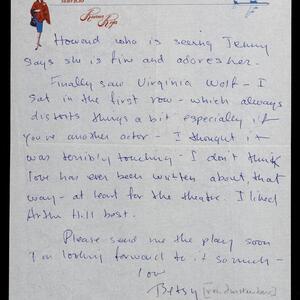 Howard who is seeing Jenny
says she is fine and adores her.
Finally saw Virginia Wolf - I
sat in the first row - which always
distorts things a bit especially if
you're another actor - I thought it
was terribly touching - I don't think
love has ever been written about that
way - at least for the theatre. I liked
Arthur Hill best.
Please send me the play soon
I'm looking forward to it so much -
love
Betsy